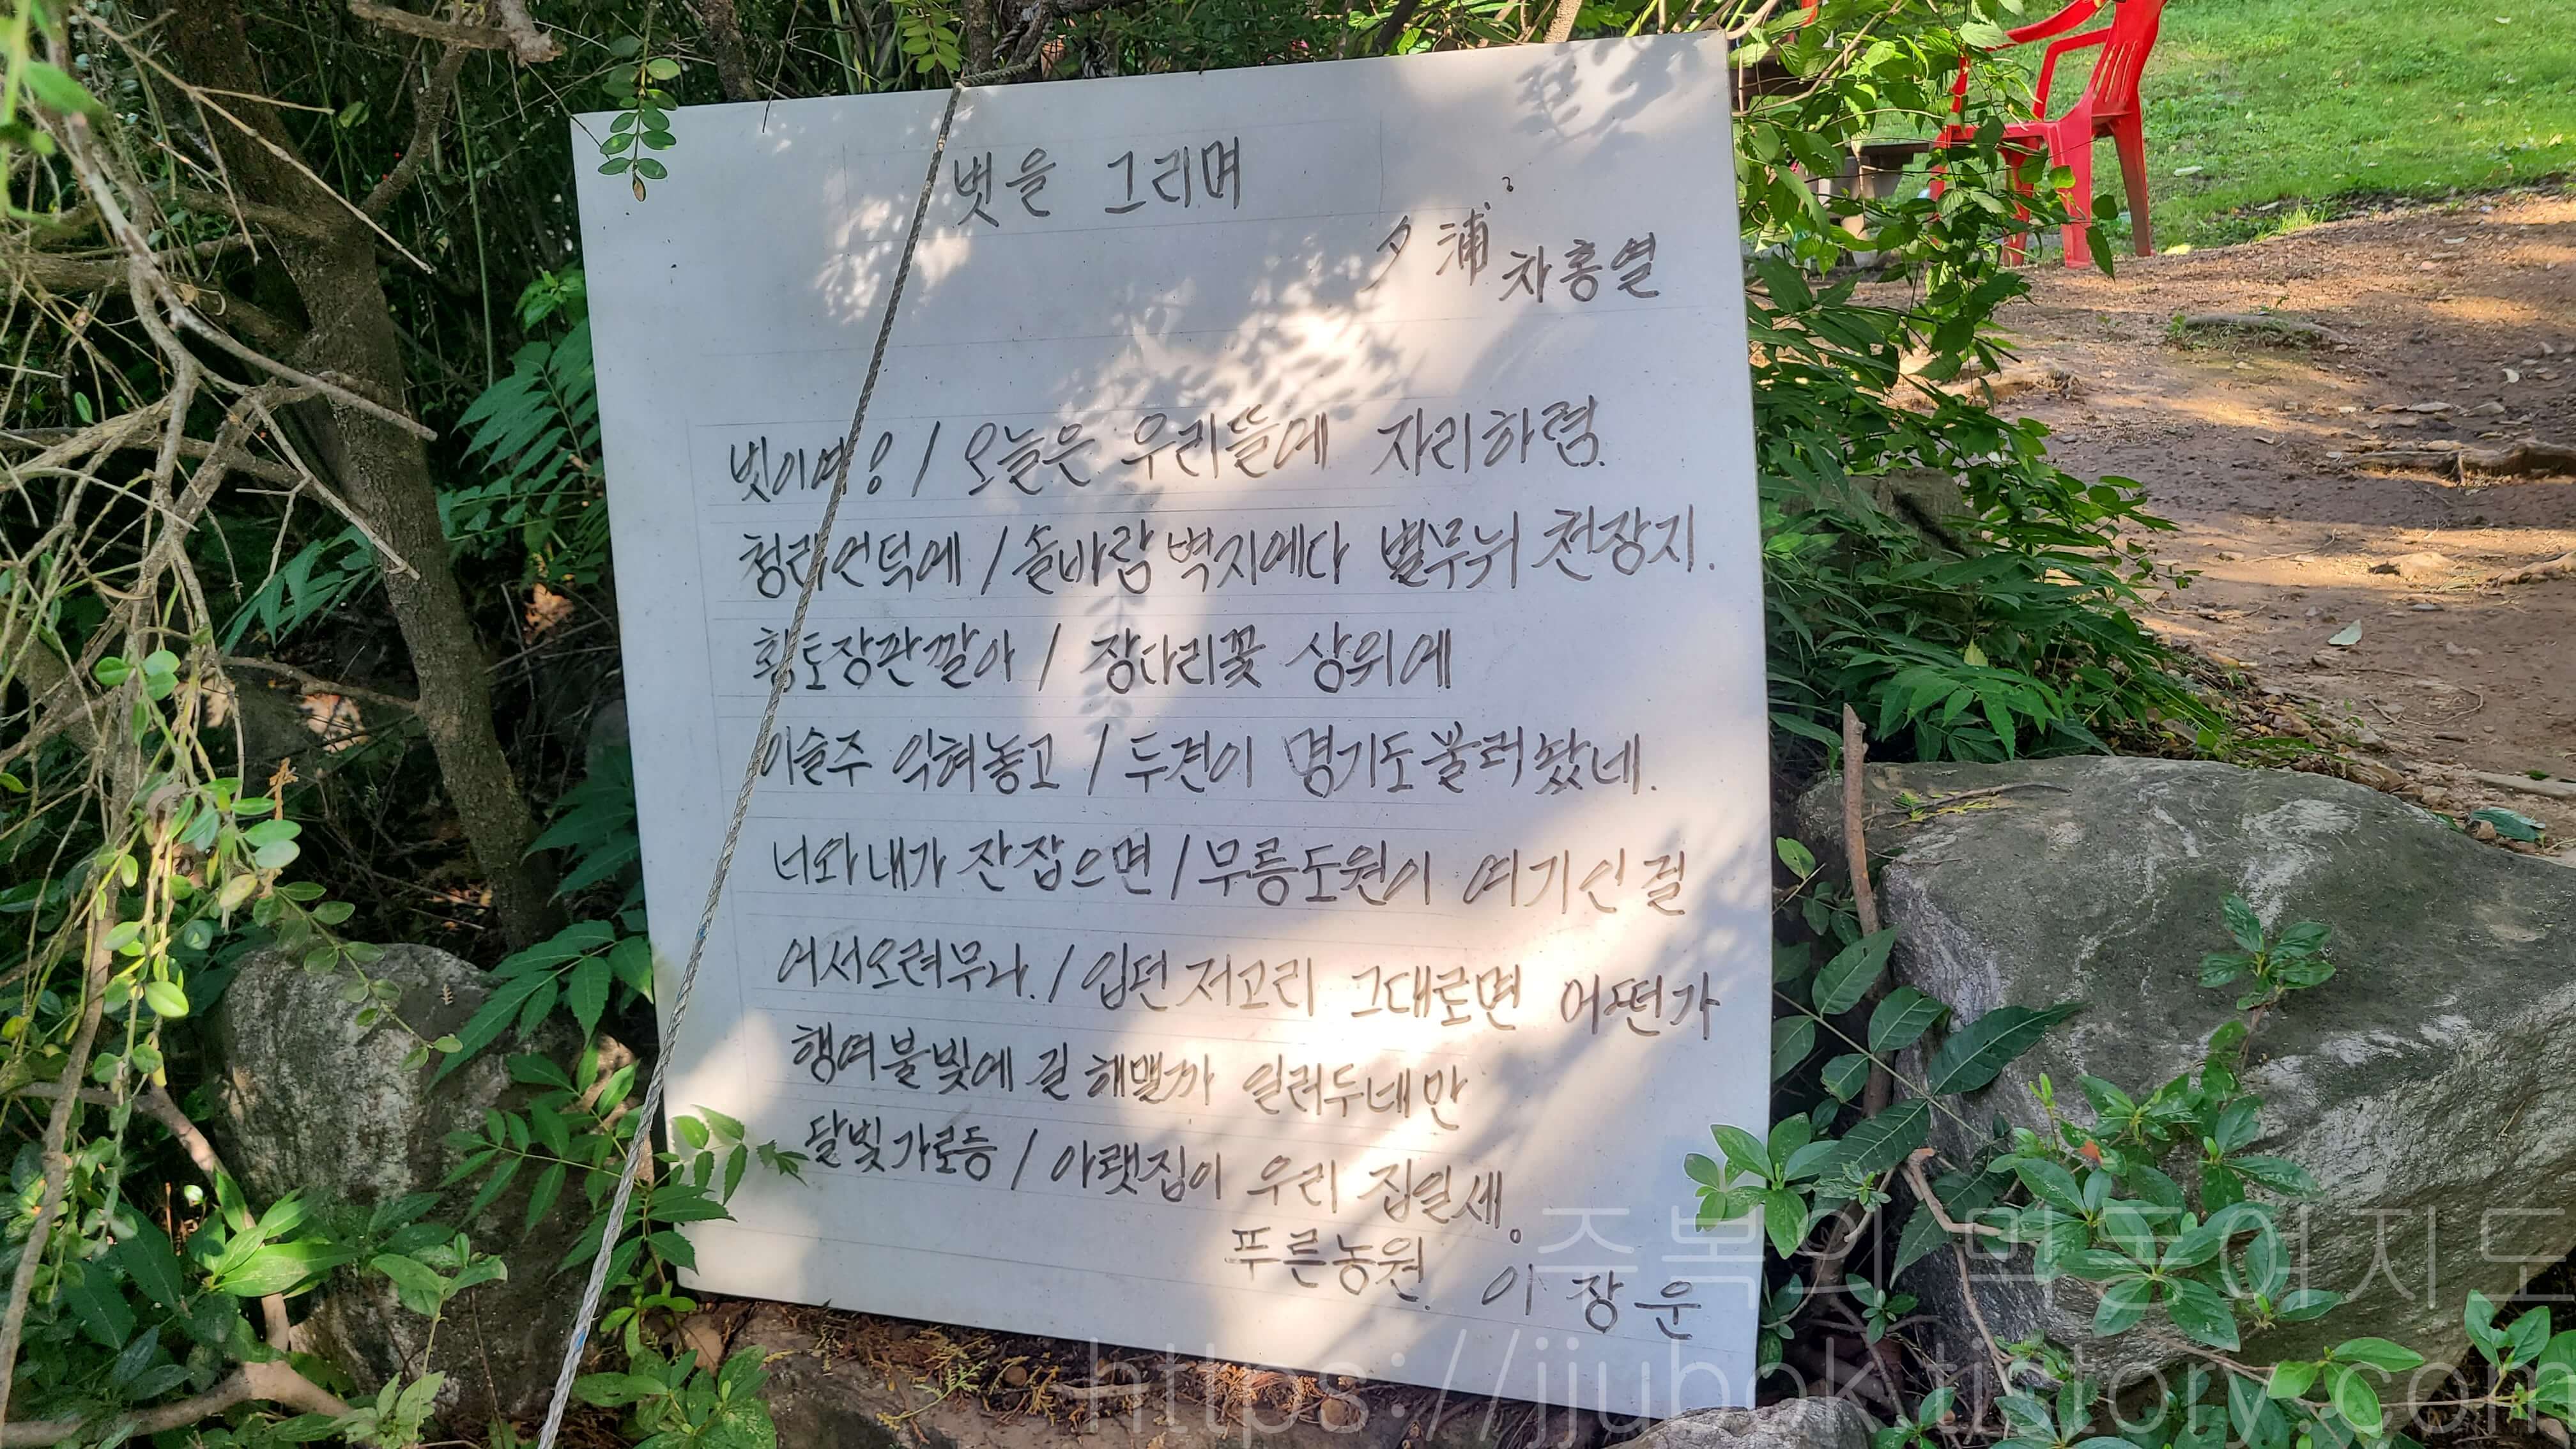 벗을 그리며
夕浦 차홍열
벗이여! / 오늘은 우리뜰에 자리하렴.
청라언덕에 / 솔바람 벽지에다 별무늬 천장지.
황토장판깔아 / 장다리꽃 상위에
이슬주 익혀놓고 / 두견이 명기도불러놨네.
너와내가 잔잡으면 / 무릉도원이 여기인걸
어서오려무나. / 입던저고리 그대로면 어떤가
행여불빛에 길 해맬까 일러두네만
달빛가로등 / 아랫집이 우리 집일세.
푸른농원. 이장운
쥬복의 먹동여지도
https://jjubok.tistory.com